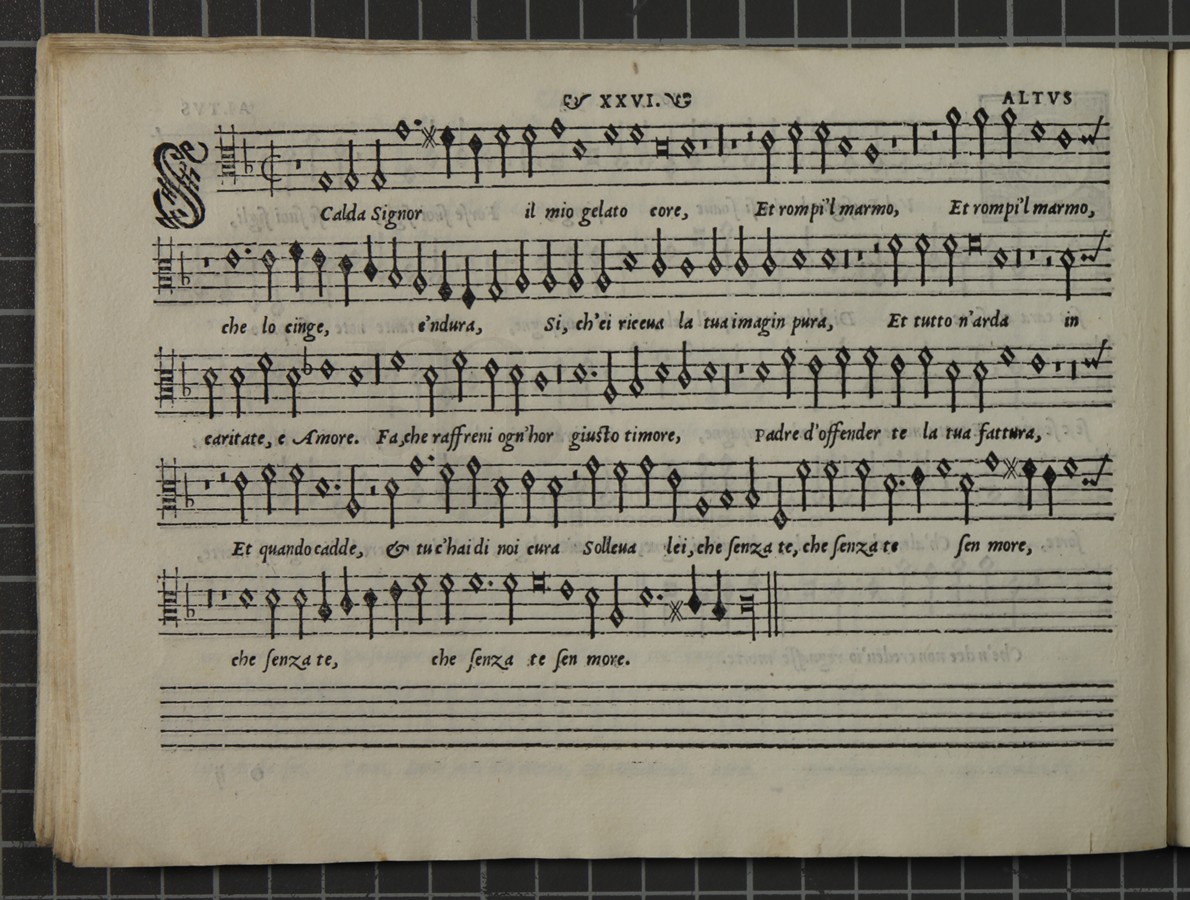 XXVI.
ALTVS
Calda Signor il mio gelato core, Et rompi'l marmo, Et rompi'l marmo,
che lo cinge, e'ndura, Sì, ch'ei riceua la tua imagin pura, Et tutto n'arda in
caritate, e Amore. Fa, che raffreni ogn'hor giusto timore, Padre d'offender te la tua fattura,
Et quando cadde, & tu c'hai di noi cura Solleua lei, che senza te, che senza te sen more,
che senza te, che senza te sen more.